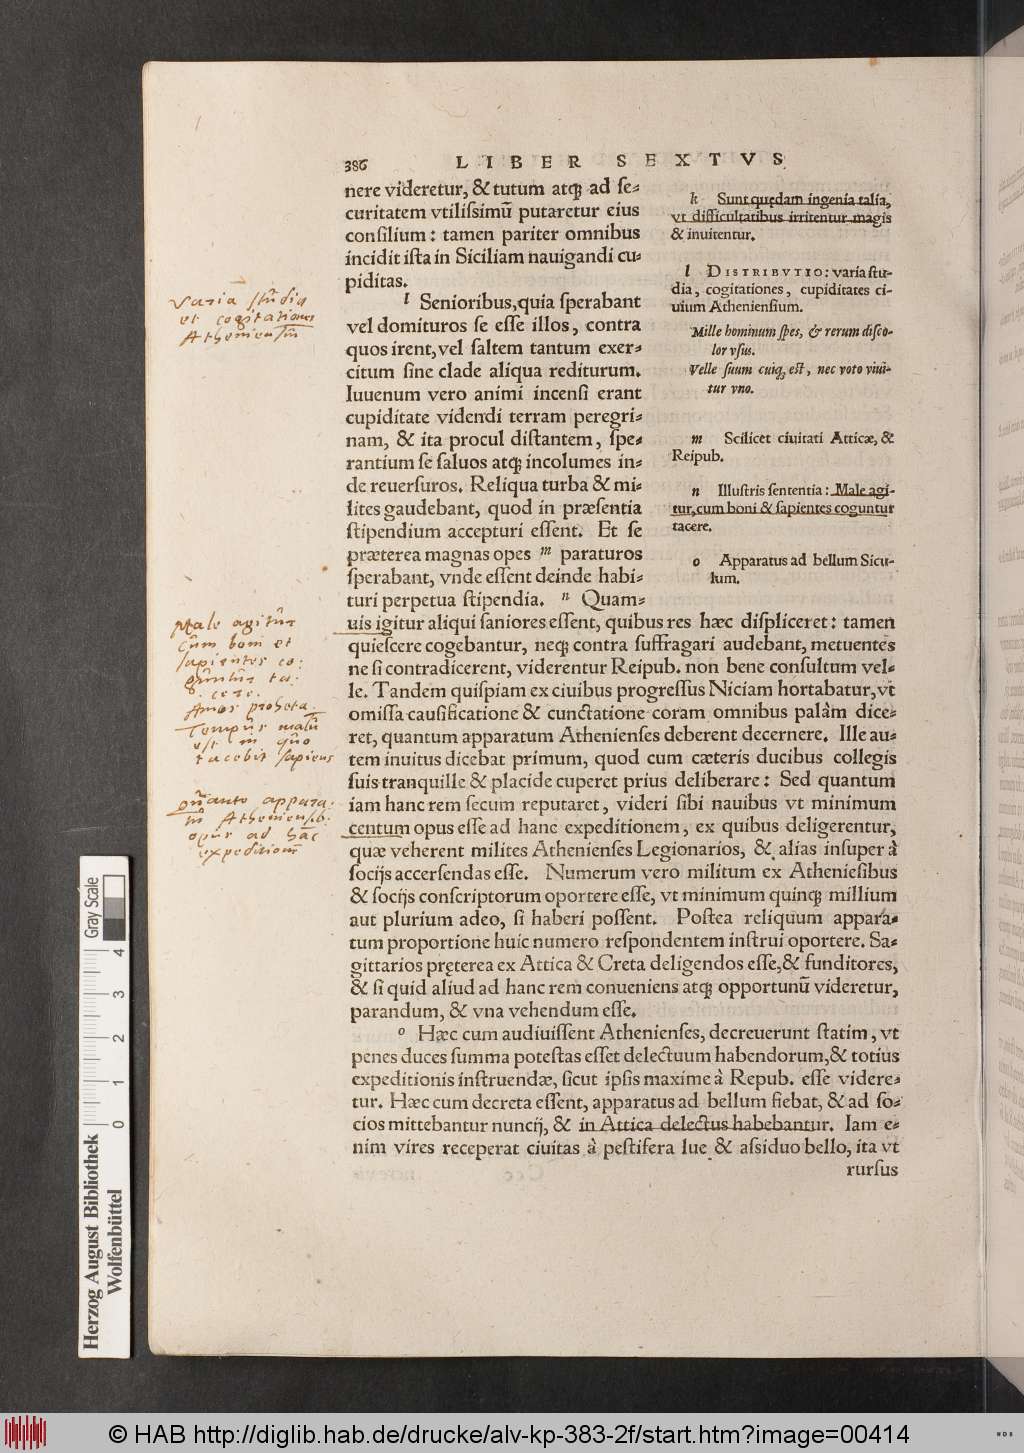 386 LIBER SEXTVS
nere videretur, & tutum atq; ad ſe-
curitatem vtiliſsimū putaretur eius
conſilium: tamen pariter omnibus
incidit iſta in Siciliam nauigandi cu-
piditas.
l Senioribus, quia ſperabant
vel domituros ſe eſſe illos, contra
quos irent, vel ſaltem tantum exer-
citum ſine clade aliqua rediturum.
Iuuenum vero animi incenſi erant
cupiditate videndi terram peregri-
nam, & ita procul diſtantem, ſpe-
rantium ſe ſaluos atq; incolumes in-
de reuerſuros. Reliqua turba & mi-
lites gaudebant, quod in præſentia
ſtipendium accepturi eſſent. Et ſe
præterea magnas opes m paraturos
ſperabant, vnde eſſent deinde habi-
turi perpetua ſtipendia. n Quam-
uis igitur aliqui ſaniores eſſent, quibus res hæc diſpliceret: tamen
quieſcere cogebantur, neq; contra ſuffragari audebant, metuentes
ne ſi contradicerent, viderentur Reipub. non bene conſultum vel-
le. Tandem quiſpiam ex ciuibus progreſſus Niciam hortabatur, vt
omiſſa cauſificatione & cunctatione coram omnibus palàm dice-
ret, quantum apparatum Athenienſes deberent decernere. Ille au-
tem inuitus dicebat primum, quod cum cæteris ducibus collegis
ſuis tranquille & placide cuperet prius deliberare: Sed quantum
iam hanc rem ſecum reputaret, videri ſibi nauibus vt minimum
centum opus eſſe ad hanc expeditionem, ex quibus deligerentur,
quæ veherent milites Athenienſes Legionarios, & alias inſuper à
ſocijs accerſendas eſſe. Numerum vero militum ex Atheniēſibus
& ſocijs conſcriptorum oportere eſſe, vt minimum quinq; millium
aut plurium adeo, ſi haberi poſſent. Poſtea reliquum appara-
tum proportione huic numero reſpondentem inſtrui oportere. Sa-
gittarios pręterea ex Attica & Creta deligendos eſſe, & funditores,
& ſi quid aliud ad hanc rem conueniens atq; opportunū videretur,
parandum, & vna vehendum eſſe.
o Hæc cum audiuiſſent Athenienſes, decreuerunt ſtatim, vt
penes duces ſumma poteſtas eſſet delectuum habendorum, & totius
expeditionis inſtruendæ, ſicut ipſis maxime à Repub. eſſe videre-
tur. Hæc cum decreta eſſent, apparatus ad bellum fiebat, & ad ſo-
cios mittebantur nuncij, & in Attica delectus habebantur. Iam e-
nim vires receperat ciuitas à peſtifera lue & aſsiduo bello, ita vt
rurſus
k Sunt quędam ingenia talia,
vt difficultatibus irritentur magis
& inuitentur.
l DISTRIBVTIO: varia ſtu-
dia, cogitationes, cupiditates ci-
uium Athenienſium.
Mille hominum ſpes, & rerum diſco-
lor vſus.
Velle ſuum cuiq; eſt, nec voto viui-
tur vno.
m Scilicet ciuitati Atticæ, &
Reipub.
n Illuſtris ſententia: Male agi-
tur, cum boni & ſapientes coguntur
tacere.
o Apparatus ad bellum Sicu-
lum.
Varia ſtudia
et cogitationes
Atheniensiū
Male agitur
cum boni et
sapientes co-
guntur ta-
cere.
Amos propheta.
Tempus malū
est in quo
tacebit sapiens
Quanto appara-
tu Atheniensib.
opus ad hāc
expeditionē
Gray Scale
0 1 2 3 4
Herzog August Bibliothek
Wolfenbüttel
© HAB http://diglib.hab.de/drucke/alv-kp-383-2f/start.htm?image=00414